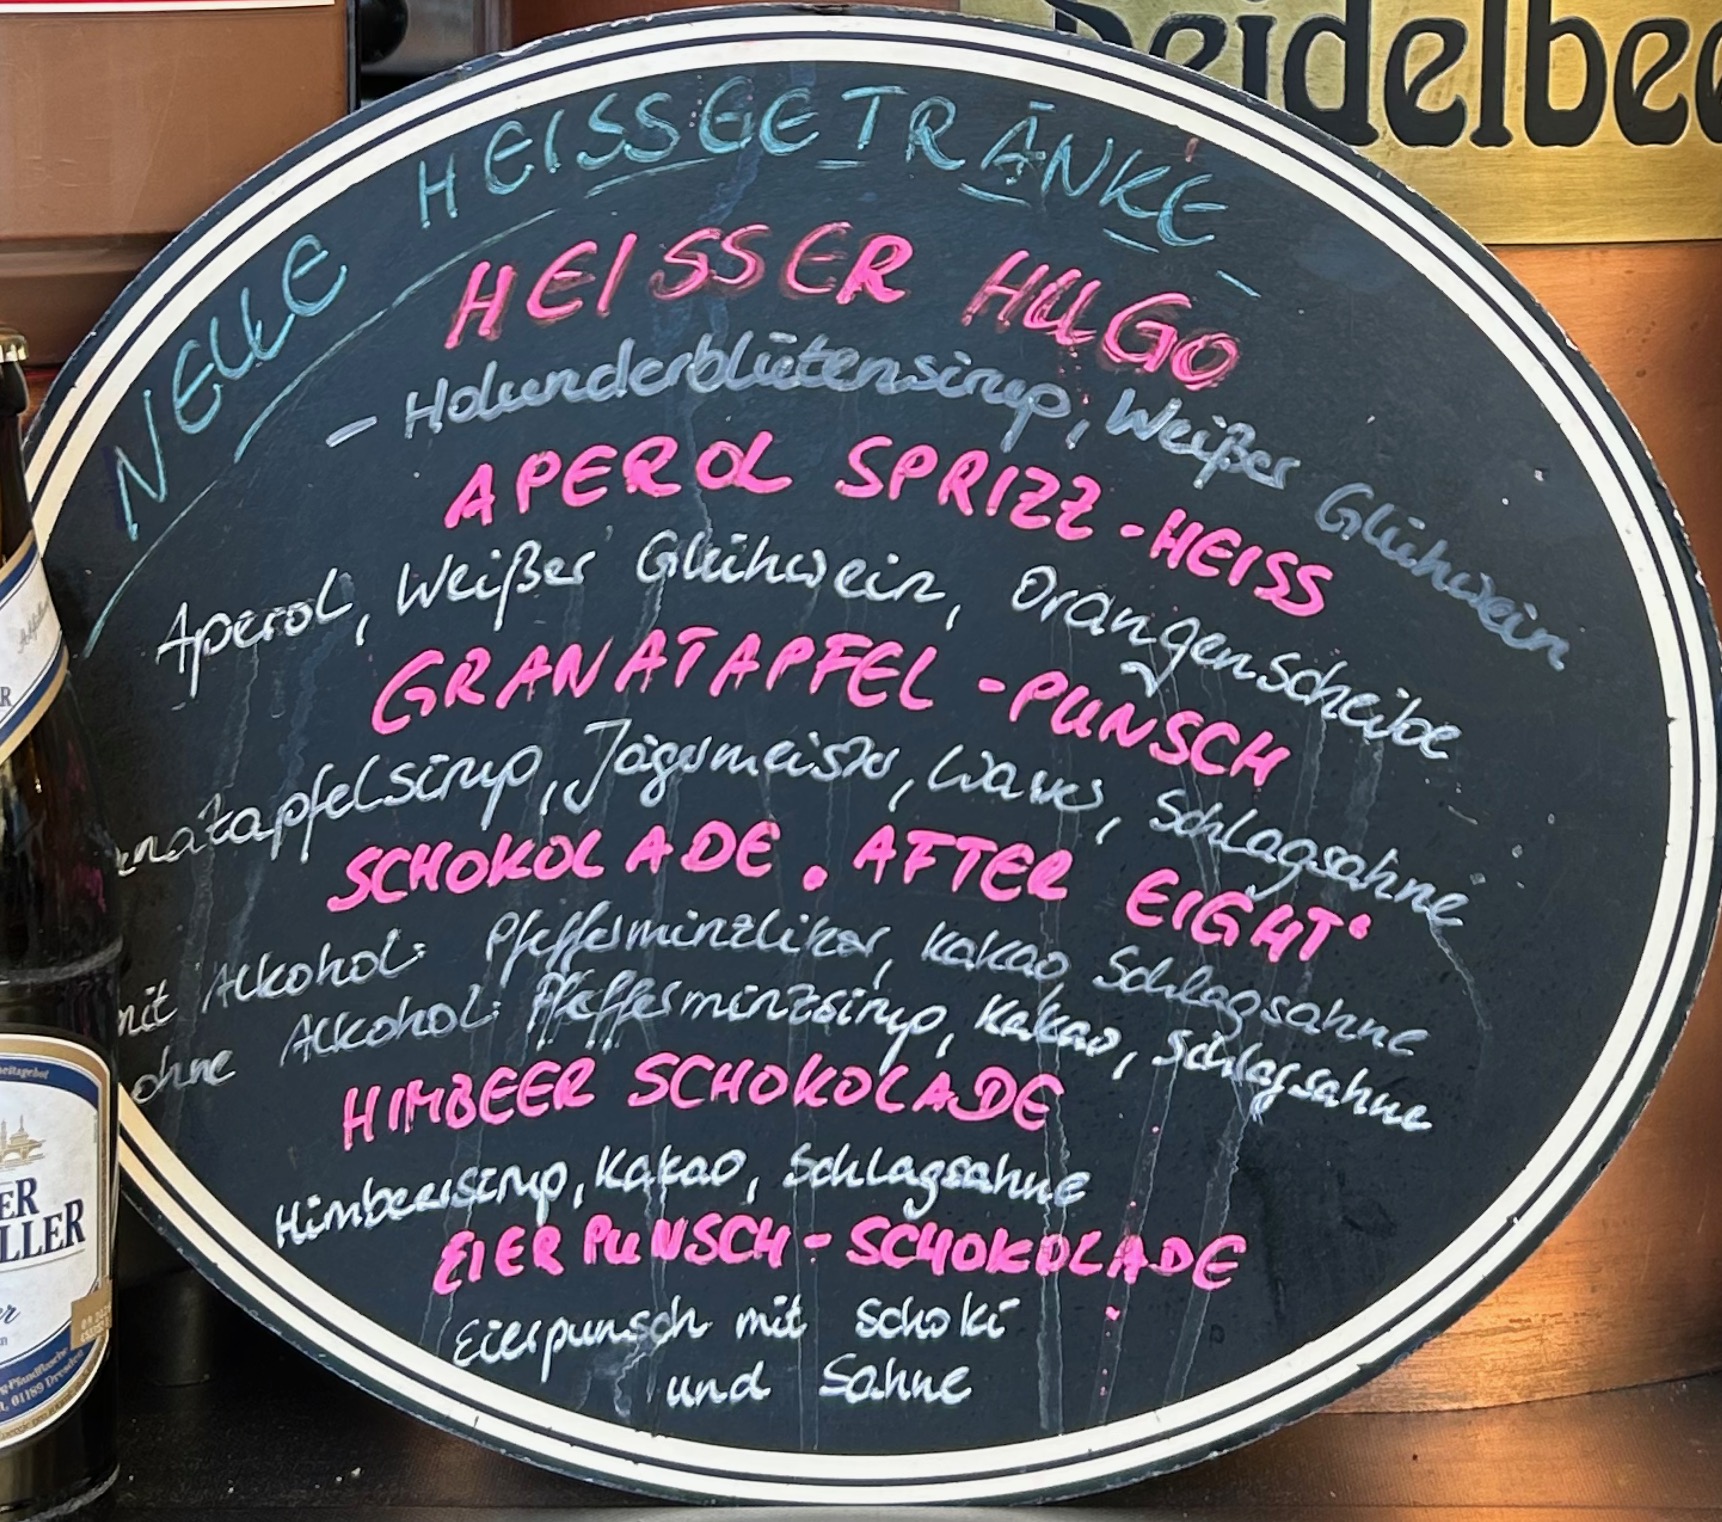 Heidelbee
NELLE HEISSGETRÄNKE
HEISSER HUGO
- Holunderblütensirup, Weißer Glühwein
APEROL SPRIZZ-HEISS
Aperol, Weißer Glühwein, Orangenscheibe
GRANATAPFEL-PUNSCH
anatapfelsirup, Jägermeister, Warmes, Schlagsahne
SCHOKOLADE "AFTER EIGHT"
mit Alkohol: Pfefferminzlikör, Kakao, Schlagsahne
ohne Alkohol: Pfefferminzsirup, Kakao, Schlagsahne
HIMBEER SCHOKOLADE
Himbeersirup, Kakao, Schlagsahne
EIERPUNSCH-SCHOKOLADE
Eierpunsch mit Schoki
und Sahne
ER
LLER
01189 Dresden